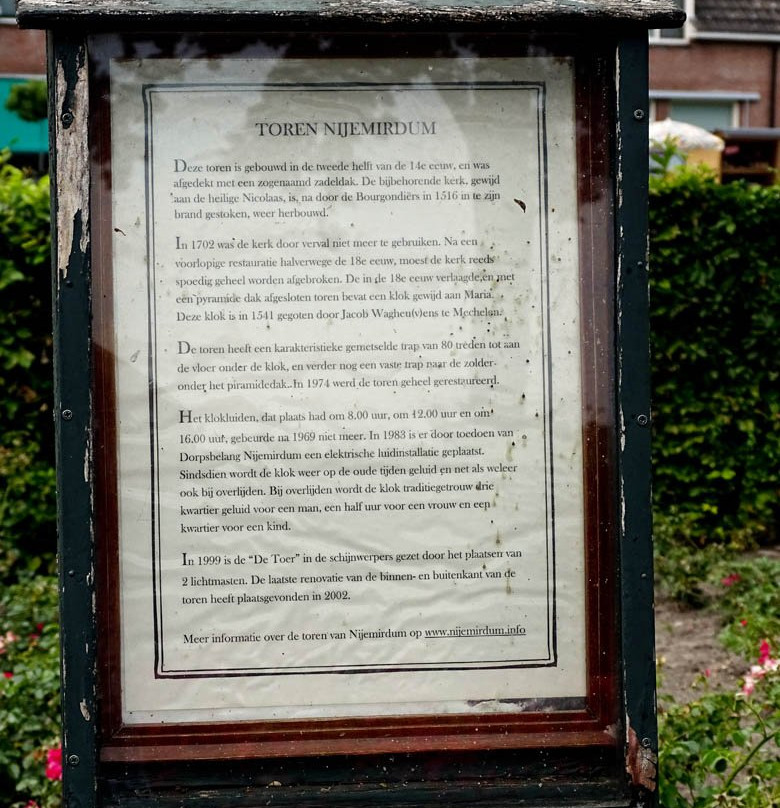 TOREN NIJEMIRDUM
Deze toren is gebouwd in de tweede helft van de 14e eeuw, en was
afgedekt met een zogenaamd zadeldak. De bijbehorende kerk, gewijd
aan de heilige Nicolaas, is, na door de Bourgondiërs in 1516 in te zijn
brand gestoken, weer herbouwd.
In 1702 was de kerk door verval niet meer te gebruiken. Na een
voorlopige restauratie halverwege de 18e eeuw, moest de kerk reeds
spoedig geheel worden afgebroken. De in de 18e eeuw verlaagde en met
een pyramide dak afgesloten toren bevat een klok gewijd aan Maria.
Deze klok is in 1541 gegoten door Jacob Wagheu(v)ens te Mechelen.
De toren heeft een karakteristieke gemetselde trap van 80 treden tot aan
de vloer onder de klok, en verder nog een vaste trap naar de zolder
onder het piramidedak. In 1974 werd de toren geheel gerestaureerd.
Het klokluiden, dat plaats had om 8.00 uur, om 12.00 uur en om
16.00 uur, gebeurde na 1969 niet meer. In 1983 is er door toedoen van
Dorpsbelang Nijemirdum een elektrische luidinstallatie geplaatst.
Sindsdien wordt de klok weer op de oude tijden geluid en net als weleer
ook bij overlijden. Bij overlijden wordt de klok traditiegetrouw drie
kwartier geluid voor een man, een half uur voor een vrouw en een
kwartier voor een kind.
In 1999 is de “De Toer” in de schijnwerpers gezet door het plaatsen van
2 lichtmasten. De laatste renovatie van de binnen- en buitenkant van de
toren heeft plaatsgevonden in 2002.
Meer informatie over de toren van Nijemirdum op www.nijemirdum.info